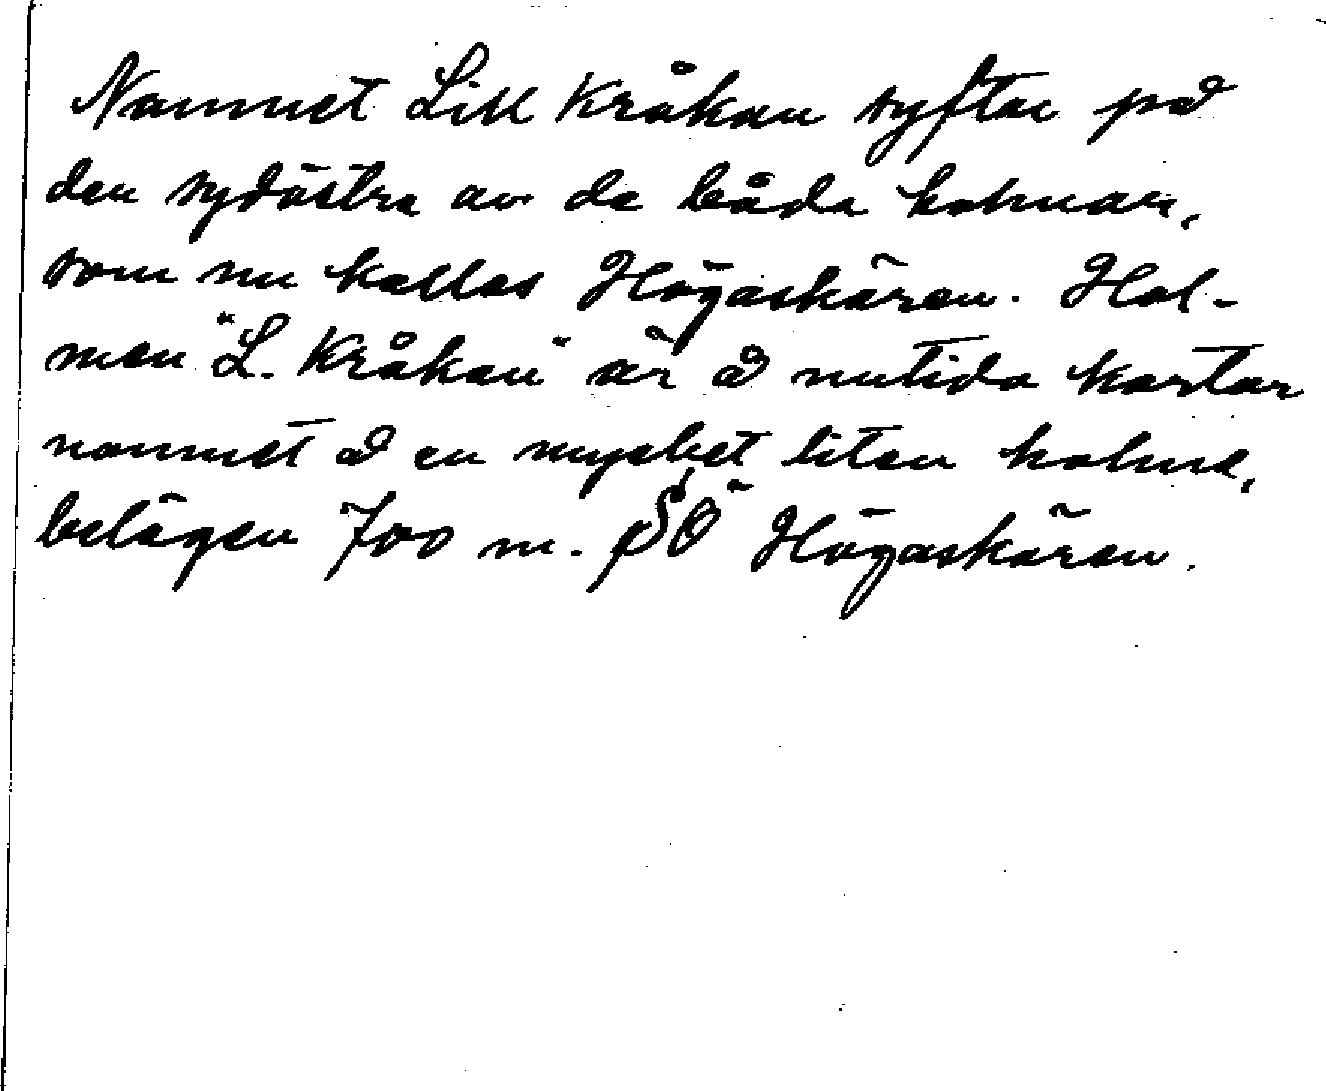 Namnet Lill Kråkan syftar på
den sydöstra av de båda holmar,
som nu kallas Högaskären. Hol-
men "L. Kråkan" är å nutida kartor
namnet å en mycket liten holme,
belägen 700 m. SÖ Högaskären.